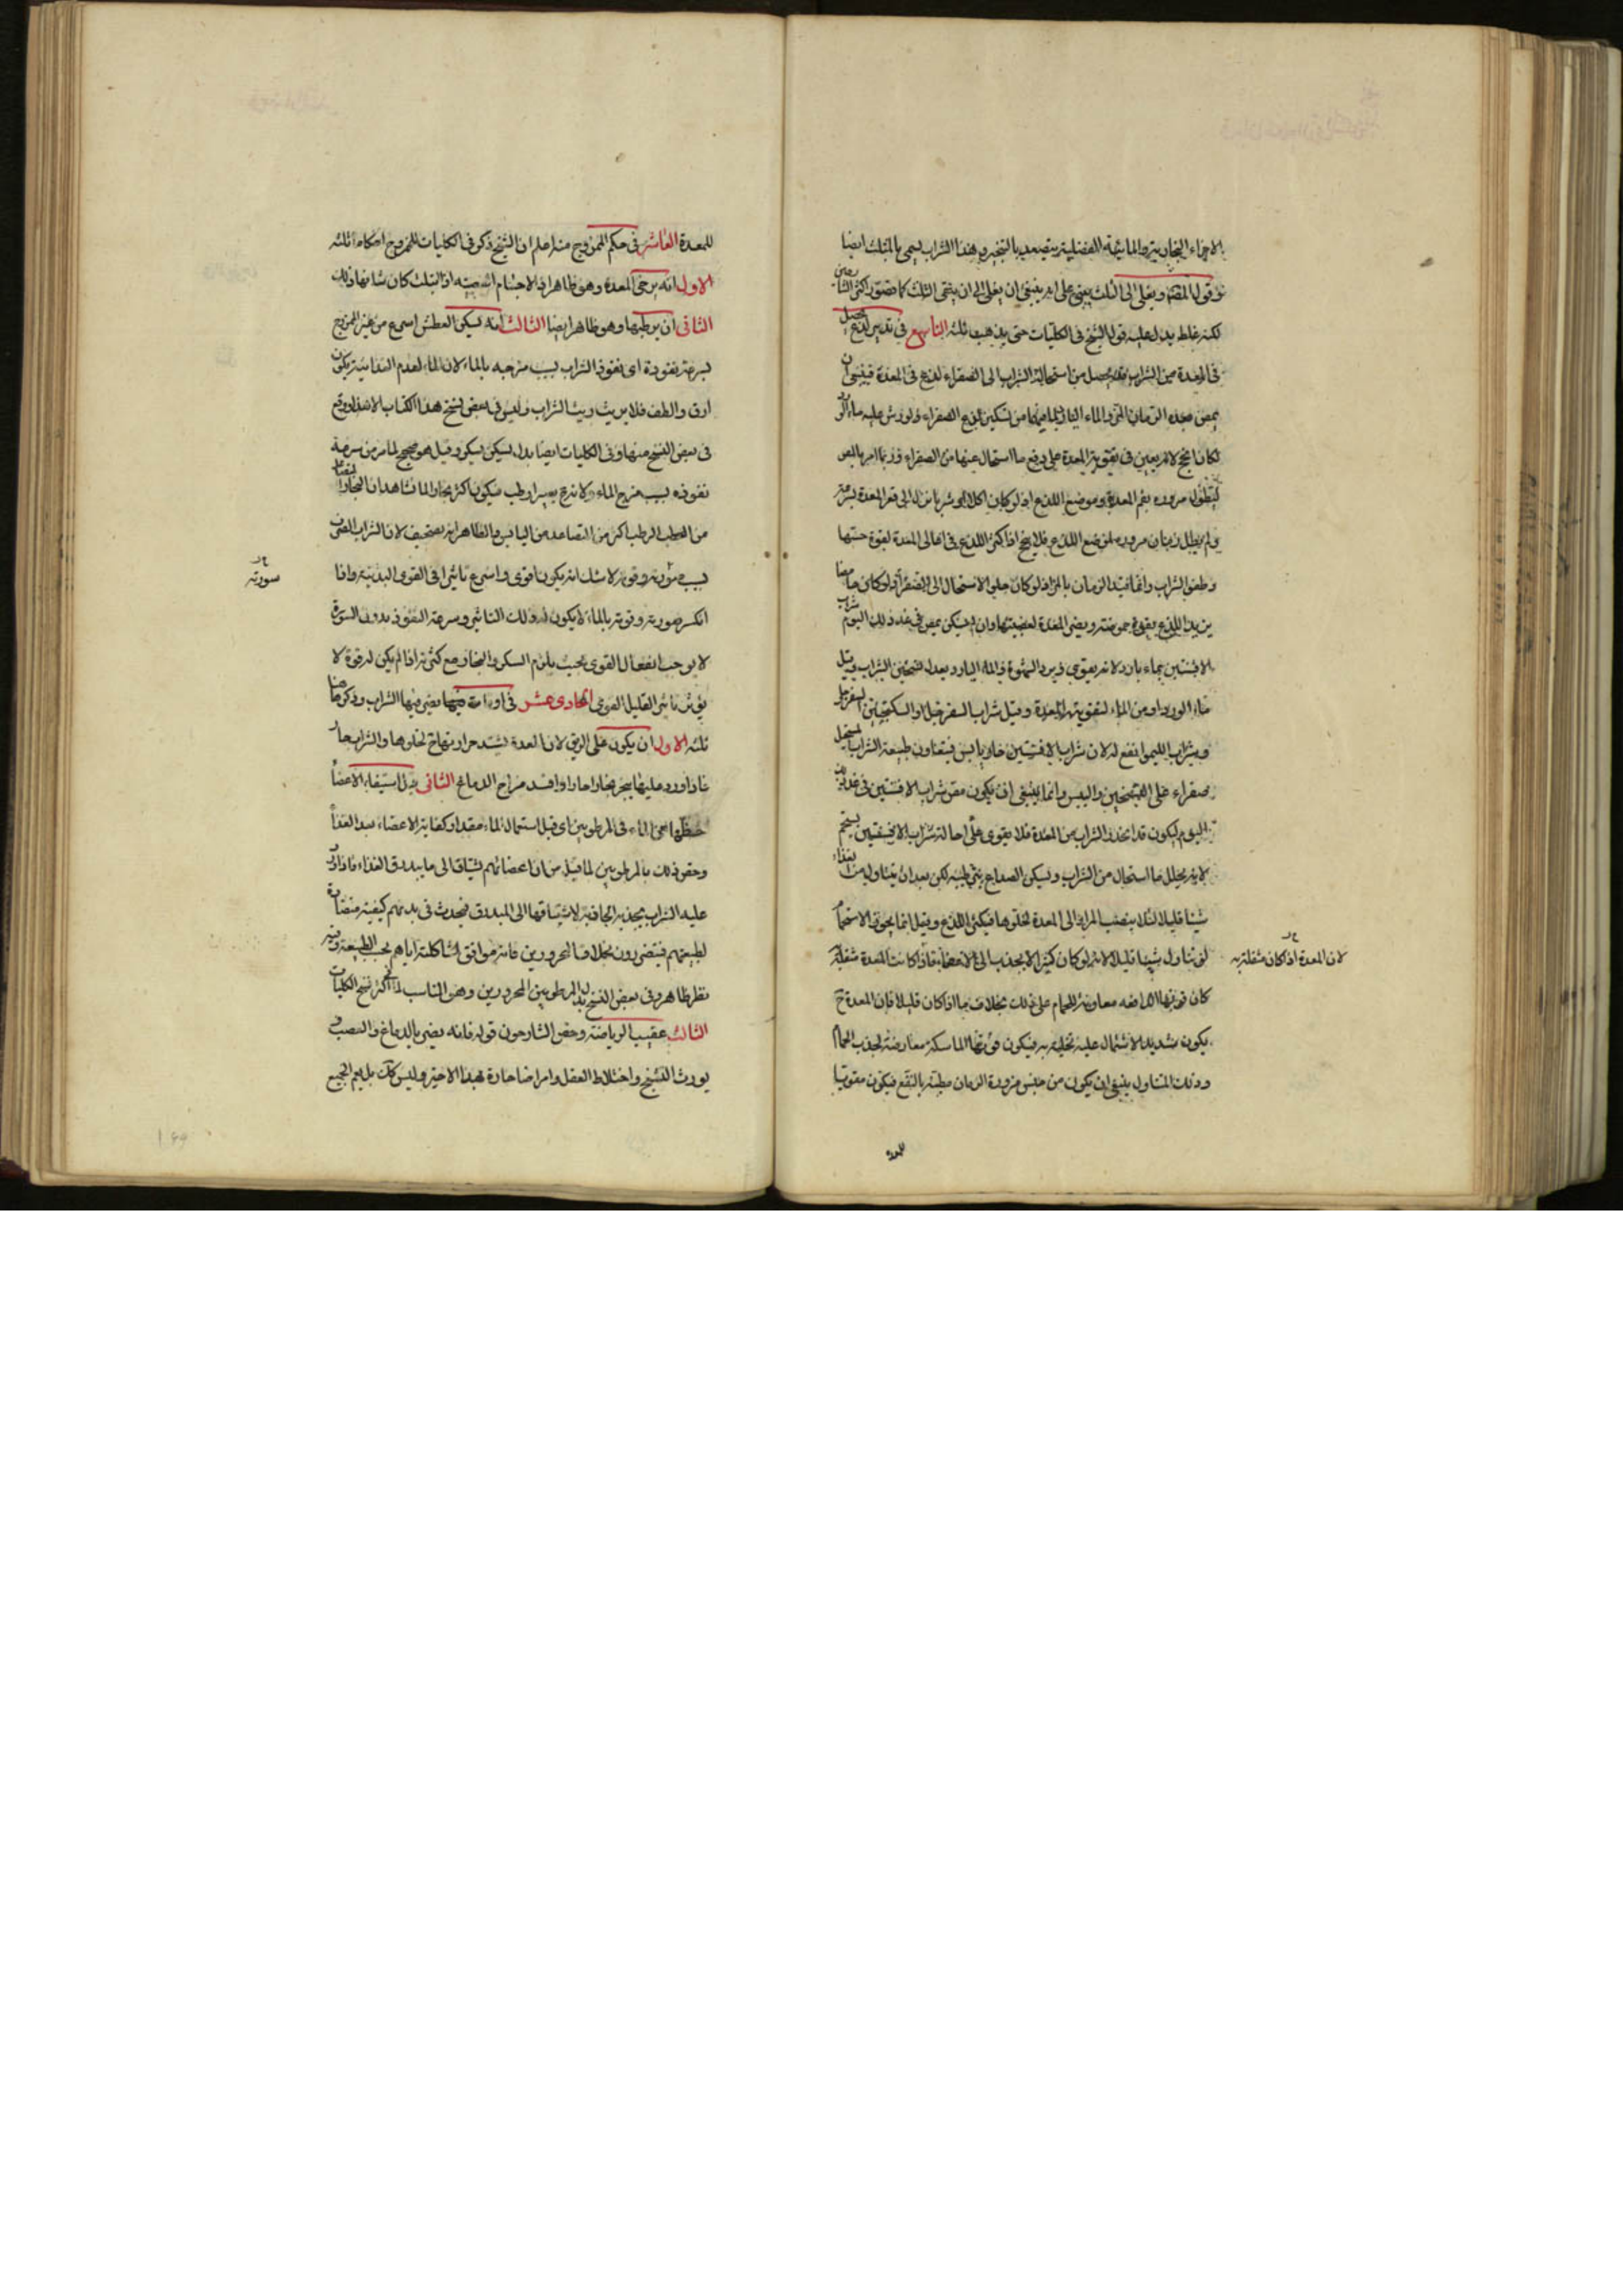 الاجزاء البخارية والمائية الفضلية يتصعد بالتبخير وهذا الشراب يسمى بالمثلث ايضا
وقول المصنف ويغلى الى الثلث يعنى على انه ينبغى ان يغلى الى ان يبقى الثلث كما تصوره اكثر الشارحين
لكنه غلط يدل عليه قول الشيخ فى الكليات حتى يذهب ثلثه التاسع فى تدبير لذع يحصل
فى المعدة من الشراب قد يحصل من استحالة الشراب الى الصفراء لذع فى المعدة فينبغى ان
يمص بعده الرمان المز والماء البارد لما فيهما من تسكين لذع الصفراء ولو رش عليه ماء الورد
لكان انجح لانه يعين فى تقوية المعدة على دفع ما استحال عنها من الصفراء وانما امر بالمص
ليطول مروره بفم المعدة وموضع اللذع اذ لو كان اكلا او شربا نزل الى قعر المعدة بسرعة
ولم يطل زمان مروره لموضع اللذع فلا ينجح اذ اكثر اللذع فى اعالى المعدة لقوة حسها
وطفو الشراب وانما قيد الرمان بالمز اذ لو كان حلوا لاستحال الى الصفراء ولو كان حامضا
يزيد اللذع بقوة حموضته ويضر المعدة لعصبيتها وان لم يسكن يمص فى غد ذلك اليوم شراب
الافسنتين بماء بارد لانه يقوى ويرد الشهوة والماء البارد يعدل تسخين الشراب وقيل
ماء الورد اولى من الماء لتقويته المعدة وقيل شراب السفرجل او السكنجبين السفرجلى
وشراب الليمو انفع له لان شراب الافسنتين حار يابس فيتعاون طبيعة الشراب المستحيل
صفراء على التسخين واليبس وانما ينبغى ان يكون مص شراب الافسنتين فى غد ذلك
اليوم ليكون قد انحدر الشراب من المعدة فلا يقوى على احالة شراب الافسنتين ويستحم
لانه يحلل ما استحال من الشراب ويسكن الصداع بترطيبه لكن بعد ان يتناول من الغذاء
شيئا قليلا لئلا ينصب المرار الى المعدة لخلوها فيكثر اللذع وقيل انما يجوز الاستحمام
لمن تناول شيئا قليلا لانه لو كان كثيرا لانجذب الى الاعضاء فاذا كانت المعدة مثقلة
لان المعدة اذا كان مثقلة به
كان قوتها الدافعة معاونة للحمام على ذلك بخلاف ما اذا كان قليلا فان المعدة ح
يكون شديد الاشتمال عليه تخليته به فيكون قوتها الماسكة معارضة لجذب الحمام
وذلك المتناول ينبغى ان يكون من جنس مزورة الرمان مطيبة بالنعنع فيكون مقويا
للمعدة
للمعدة العاشر فى حكم الممزوج منه اعلم ان الشيخ ذكر فى الكليات للممزوج احكاما ثلثة
الاول انه يرخى المعدة وهو ظاهر اذ الاجسام العصبية اذا ابتلت كان شانها ذلك
الثانى ان يرطبها وهو ظاهر ايضا الثالث انه يسكن العطش اسرع من غير الممزوج
بسرعة نفوذه اى نفوذ الشراب بسبب مزجه بالماء لان الماء لعدم الغذائية يكون
ارق والطف فلا يريث ريث الشراب وليس فى بعض نسخ هذا الكتاب الا هذا ووقع
فى بعض النسخ منها وفى الكليات ايضا بدل يسكن يسكر وقيل هو صحيح لما مر من سرعة
نفوذه بسبب مزج الماء ولا ندراجه يصير ارطب فيكون اكثر بخارا لما نشاهد ان البخار المتصاعد
من الحطب الرطب اكثر من المتصاعد من اليابس والظاهر انه تصحيف لان الشراب الصرف
بسبب سورته وقوته لا شك انه يكون اقوى واسرع تاثيرا فى القوى البدنية واذا
سورته
انكسر سورته وقوته بالماء لا يكون له ذلك التاثير وسرعة النفوذ بدون السورة
لا يوجب انفعال القوى بحيث يلزم السكر والبخار مع كثرته اذا لم يكن له قوة لا
يؤثر تاثير القليل القوى الحادى عشر فى اوقات يضر فيها الشراب وذكر ههنا
ثلثة الاول ان يكون على الريق لان المعدة تشتد حرارتها ح لخلوها والشراب حار
فاذا ورد عليها يبخر بخارا حارا وافسد مزاج الدماغ الثانى قبل استيفاء الاعضاء
حظها من الماء فى المرطوبين اى قبل استعمال الماء مقدار كفاية الاعضاء بعد الغذاء
وخص ذلك بالمرطوبين لما قيل من ان اعضائهم يشتاق الى ما يبدرق الغذاء فاذا ورد
عليه الشراب يجذبه انجذابة لاشتياقها الى المبدرق فيحدث فى بدنهم كيفية مضادة
لطبيعتهم فيتضررون بخلاف المحرورين فانه موافق لمشاكلته اياهم بحسب الطبيعة وفيه
نظر ظاهر وفى بعض النسخ بدل المرطوبين المحرورين وهو المناسب لما فى اكثر نسخ الكليات
الثالث عقيب الرياضة وخص الشارحون قوله فانه يضر بالدماغ والعصب و
يورث التشنج واختلاط العقل وامراضا حادة بهذا الاخير وليس كك بل يعم الجميع